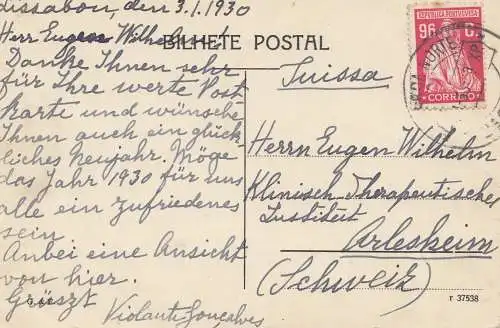 Lissabon, den 3.1.1930
Herr Eugen Wilhelm
Danke Ihnen sehr
für Ihre werte Post
karte und wünsche
Ihnen auch ein glück
liches Neujahr. Möge
das Jahr 1930 für uns
alle ein zufriedenes
sein
Anbei eine Ansicht
von hier.
Grüszt
Violante Gonçalves
BILHETE POSTAL
Suissa
REPUBLICA PORTUGUESA
96 C.
CORREIO
Herrn Eugen Wilhelm
Klinisch-Therapeutisches
Institut
Arlesheim
(Schweiz)
r 37538